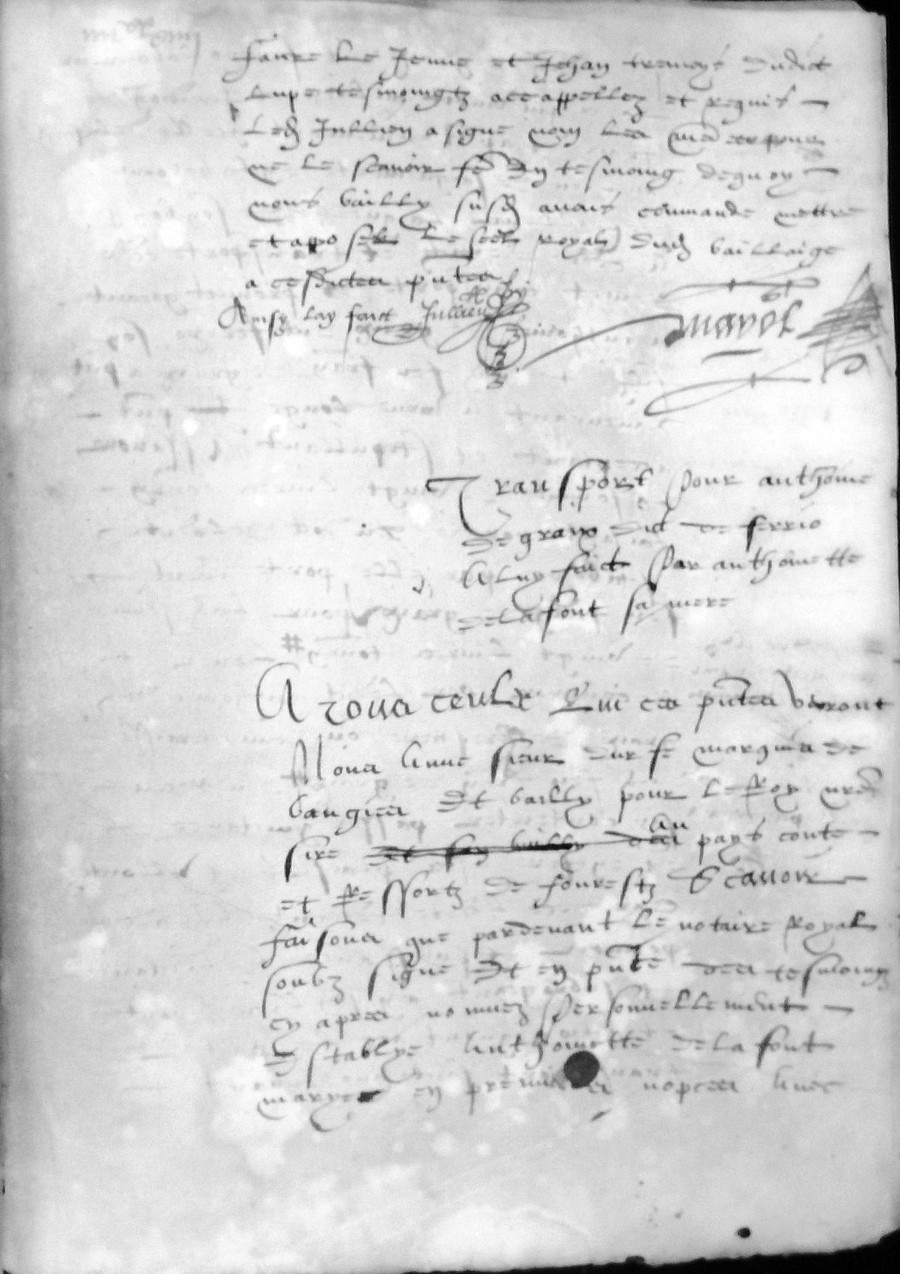 faure le Jeune et Jehan treueys dudict
lupe tesmoingtz ace appellez et requis
Led Jullien a signe non les
ne le scauoir fe En tesmoing dequoy
nous bailly susd auons comande mettre
et apposer le seel royal dud bailliaige
a cesdictes pntes
Ainsy lay faict Jullien
mayol
Transport pour anthoine
de graix dict de ferrio
A luy faict par anthoinette
delafont sa mere
A tous ceulx Qui ces pntes verront
Nous Anne sieur durfe marquis de
baugier Et bailly pour le Roy nre
sire et son bailly des au pays conte
et Ressortz de fourestz Scauoir
faisons que pardeuant Le notaire Royal
soubz signe Et en pnte des tesmoings
cy apres nommez Personnellement
Establye Anthoinette delafont
maryee en premieres nopces Auec